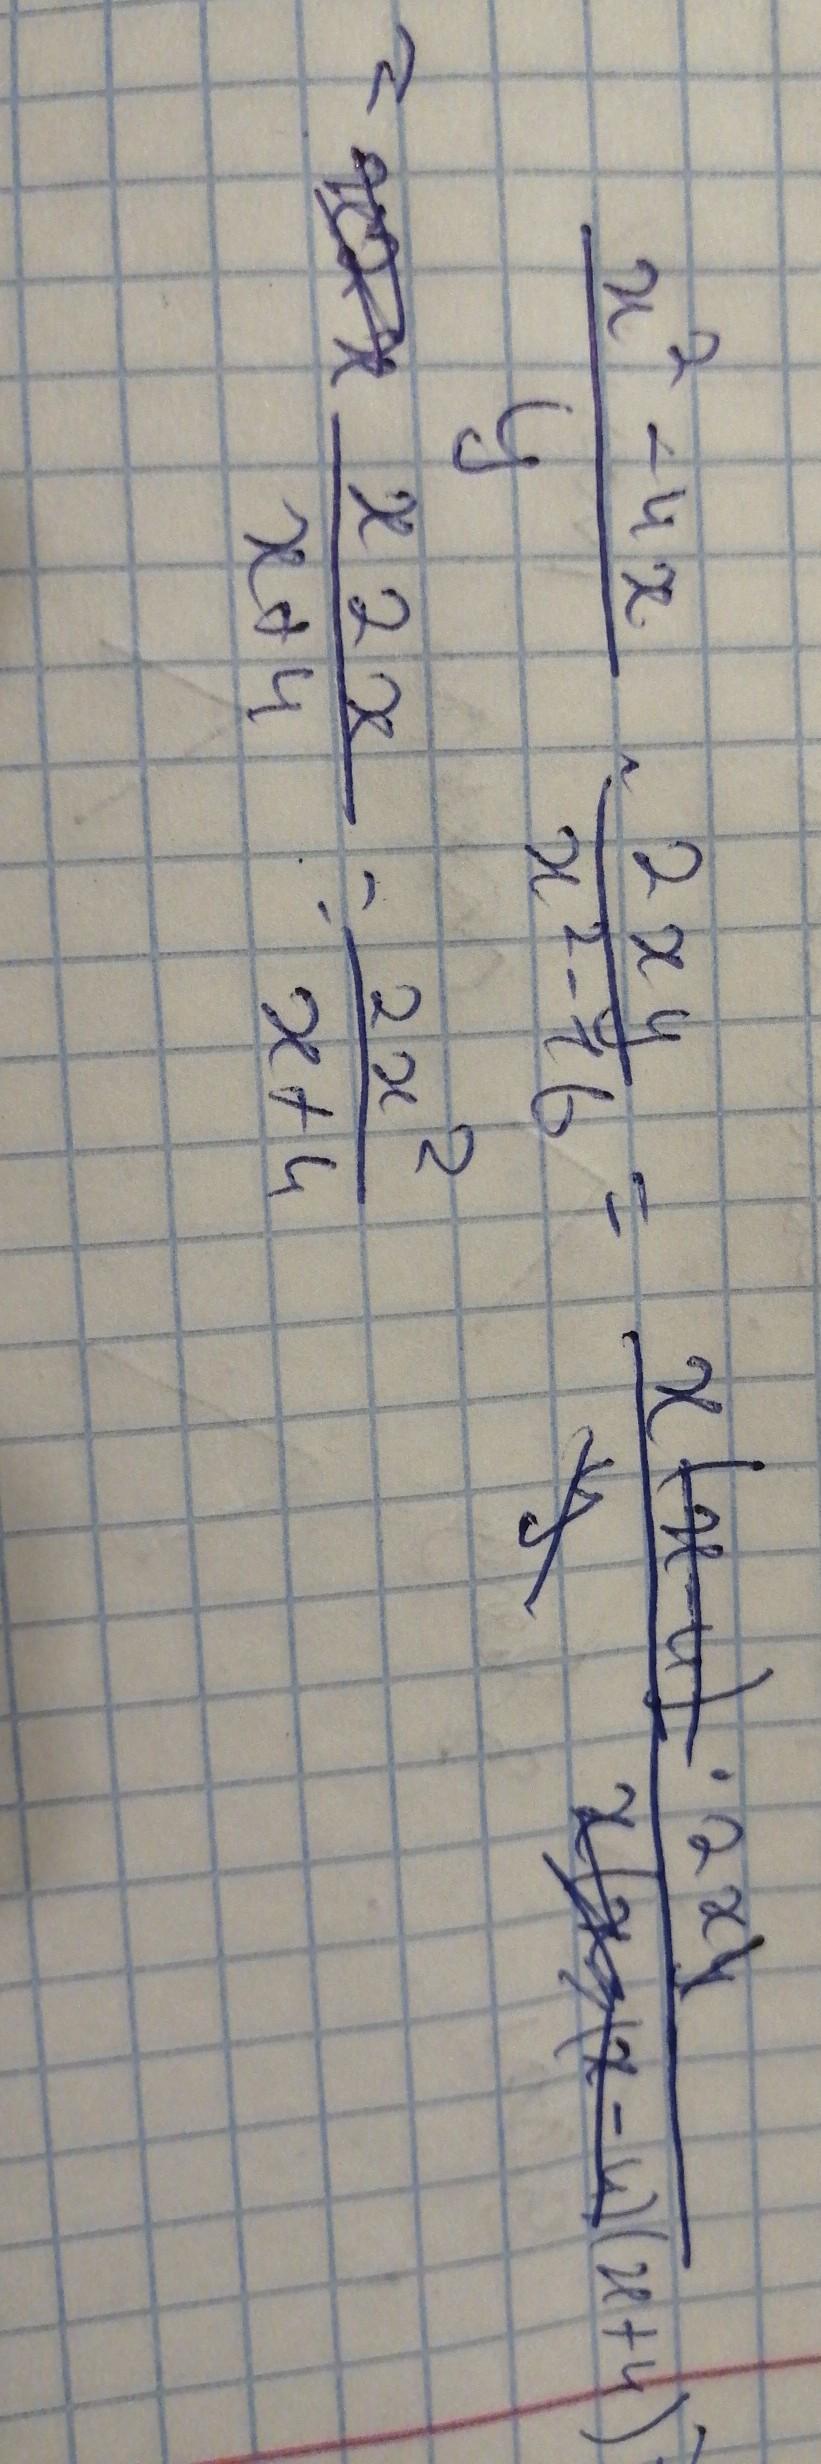 (x² - 4x)/y · 2xy/(x² - 16) = x(x-4) · 2xy / y (x-4)(x+4) =
= x2x/(x+4) = 2x²/(x+4)